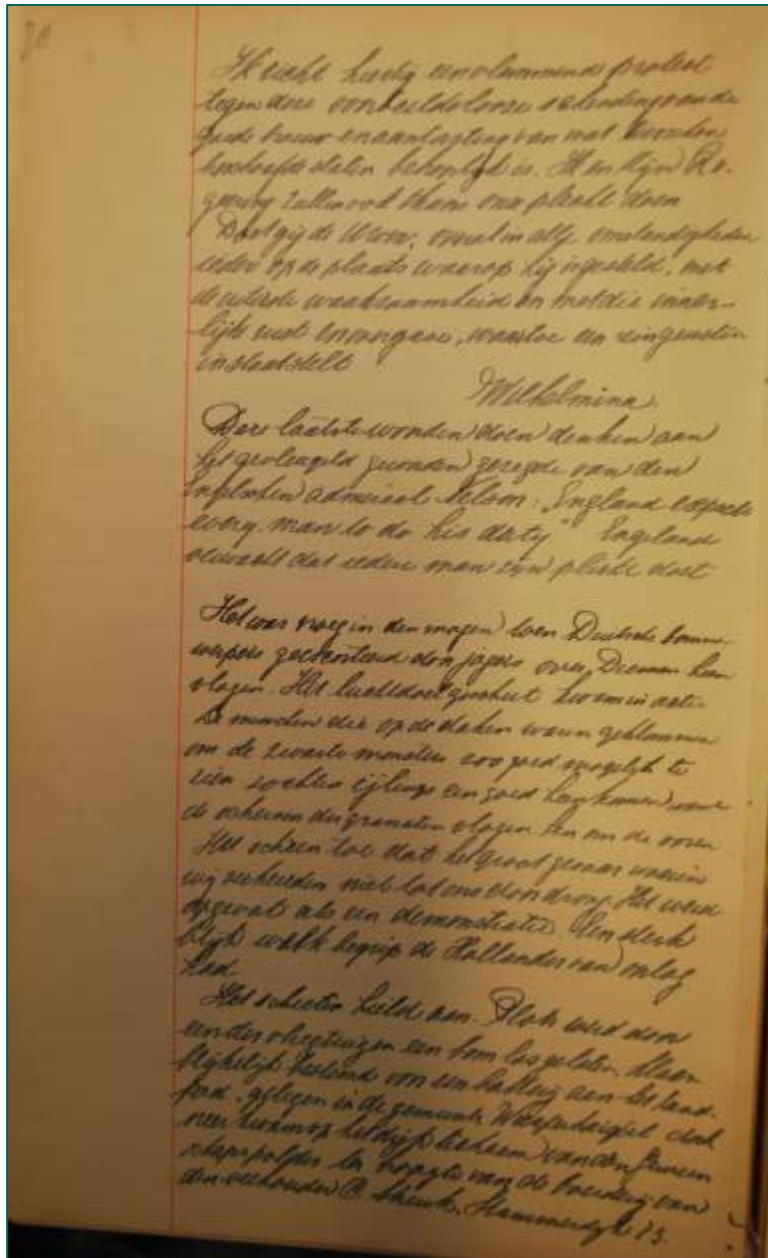 20
Ik richt hierbij een vlammend protest
tegen deze voorbeeldelooze schending van de
goede trouw en aantasting van wat tusschen
beschaafde staten behoorlijk is. Ik en Mijn Re-
geering zullen ook thans onze plicht doen
Doet gij de Uwe, overal in alle omstandigheden
ieder op de plaats waarop hij is gesteld, met
de uiterste waakzaamheid en met die inner-
lijke rust en overgave, waartoe een rein geweten
in staat stelt
Wilhelmina.
Deze laatste woorden doen denken aan
het gevleugeld geworden gezegde van den
Engelschen admiraal Nelson: „England expects
every man to do his duty." Engeland
verwacht dat iedere man zijn plicht doet
Het was vroeg in den morgen toen Duitsche bomme
werpers geëscorteerd door jagers over Diemen heen
vlogen. Het luchtdoelgeschut kwam in actie
De menschen die op de daken waren geklommen
om de zwarte monsters zoo goed mogelijk te
zien zochten ijlings een goed heenkomen, want
de scherven der granaten vlogen hen om de ooren
Het scheen toe dat het groot gevaar waarin
wij verkeerden niet tot ons doordrong. Het werd
opgevat als een demonstratie. Een sterk
blijk welk begrip de Hollander van oorlog
had
Het schieten hield aan. Plots werd door
een der vliegtuigen een bom losgelaten, klaar
blijkelijk bestemd voor een batterij aan het land
gelegen in de gemeente Weesperkarspel doch
neer kwam op het dijklichaam van den Gemeen
schapspolder ter hoogte van de boerderij van
den veehouder